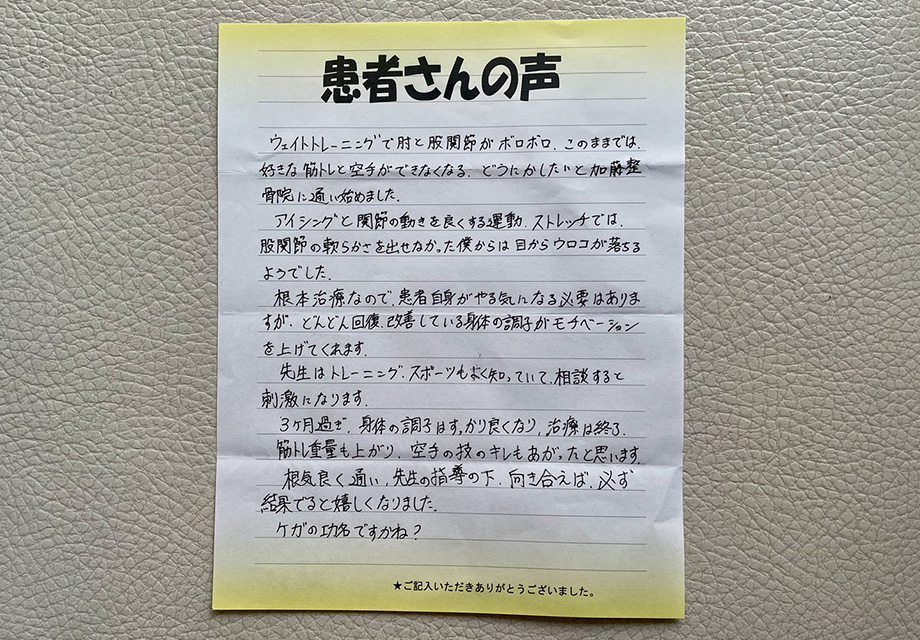 患者さんの声
ウェイトトレーニングで肘と股関節がボロボロ、このままでは、
好きな筋トレと空手ができなくなる、どうにかしたいと加藤整
骨院に通い始めました。
アイシングと関節の動きを良くする運動、ストレッチでは、
股関節の軟らかさを出せなかった僕からは目からウロコが落ちる
ようでした。
根本治療なので、患者自身がやる気になる必要はありま
すが、どんどん回復、改善している身体の調子がモチベーション
を上げてくれます。
先生はトレーニング、スポーツもよく知っていて、相談すると
刺激になります。
3ヶ月過ぎ、身体の調子はすっかり良くなり、治療は終了、
筋トレ重量も上がり、空手の技のキレもあがったと思います。
根気良く通い、先生の指導の下、向き合えば、必ず
結果でると嬉しくなりました。
ケガの功名ですかね?
★ご記入いただきありがとうございました。